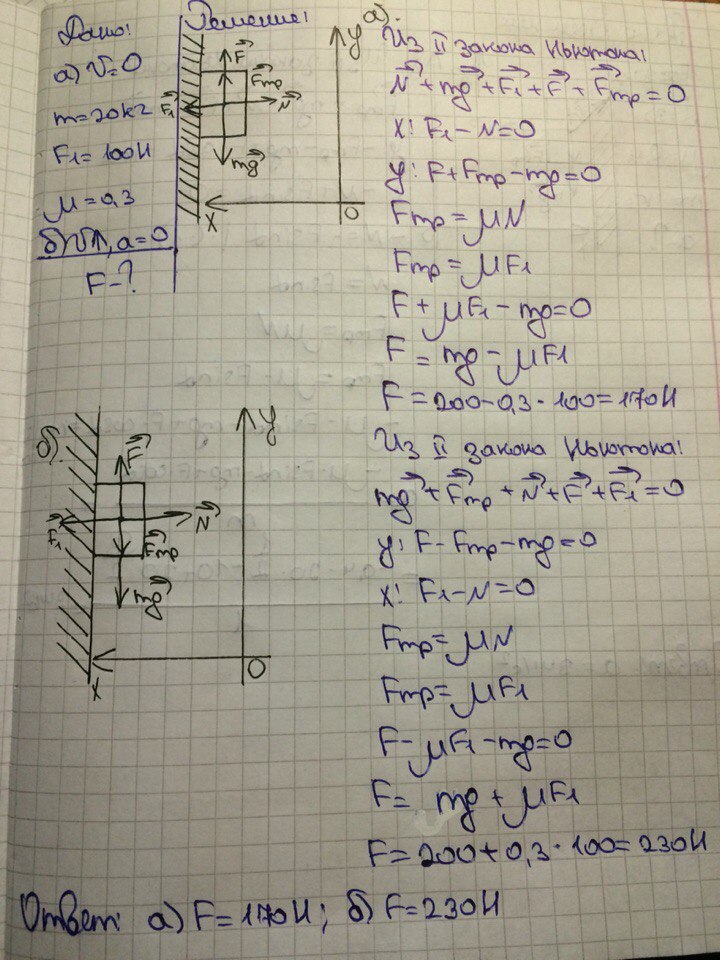 Дано:
а) v=0
m=20кг
F₁=100Н
μ=0,3
б) v↑, a=0
F-?
Решение:
F⃗
F⃗тр
F⃗₁
N⃗
mg⃗
y
x
0
а).
Из II закона Ньютона:
N⃗+mg⃗+F⃗₁+F⃗+F⃗тр=0
x: F₁-N=0
y: F+Fтр-mg=0
Fтр=μN
Fтр=μF₁
F+μF₁-mg=0
F=mg-μF₁
F=200-0,3·100=170Н
б)
F⃗
F⃗₁
N⃗
F⃗тр
mg⃗
y
x
0
Из II закона Ньютона:
mg⃗+F⃗тр+N⃗+F⃗+F⃗₁=0
y: F-Fтр-mg=0
x: F₁-N=0
Fтр=μN
Fтр=μF₁
F-μF₁-mg=0
F= mg+μF₁
F=200+0,3·100=230Н
Ответ: а) F=170Н; б) F=230Н